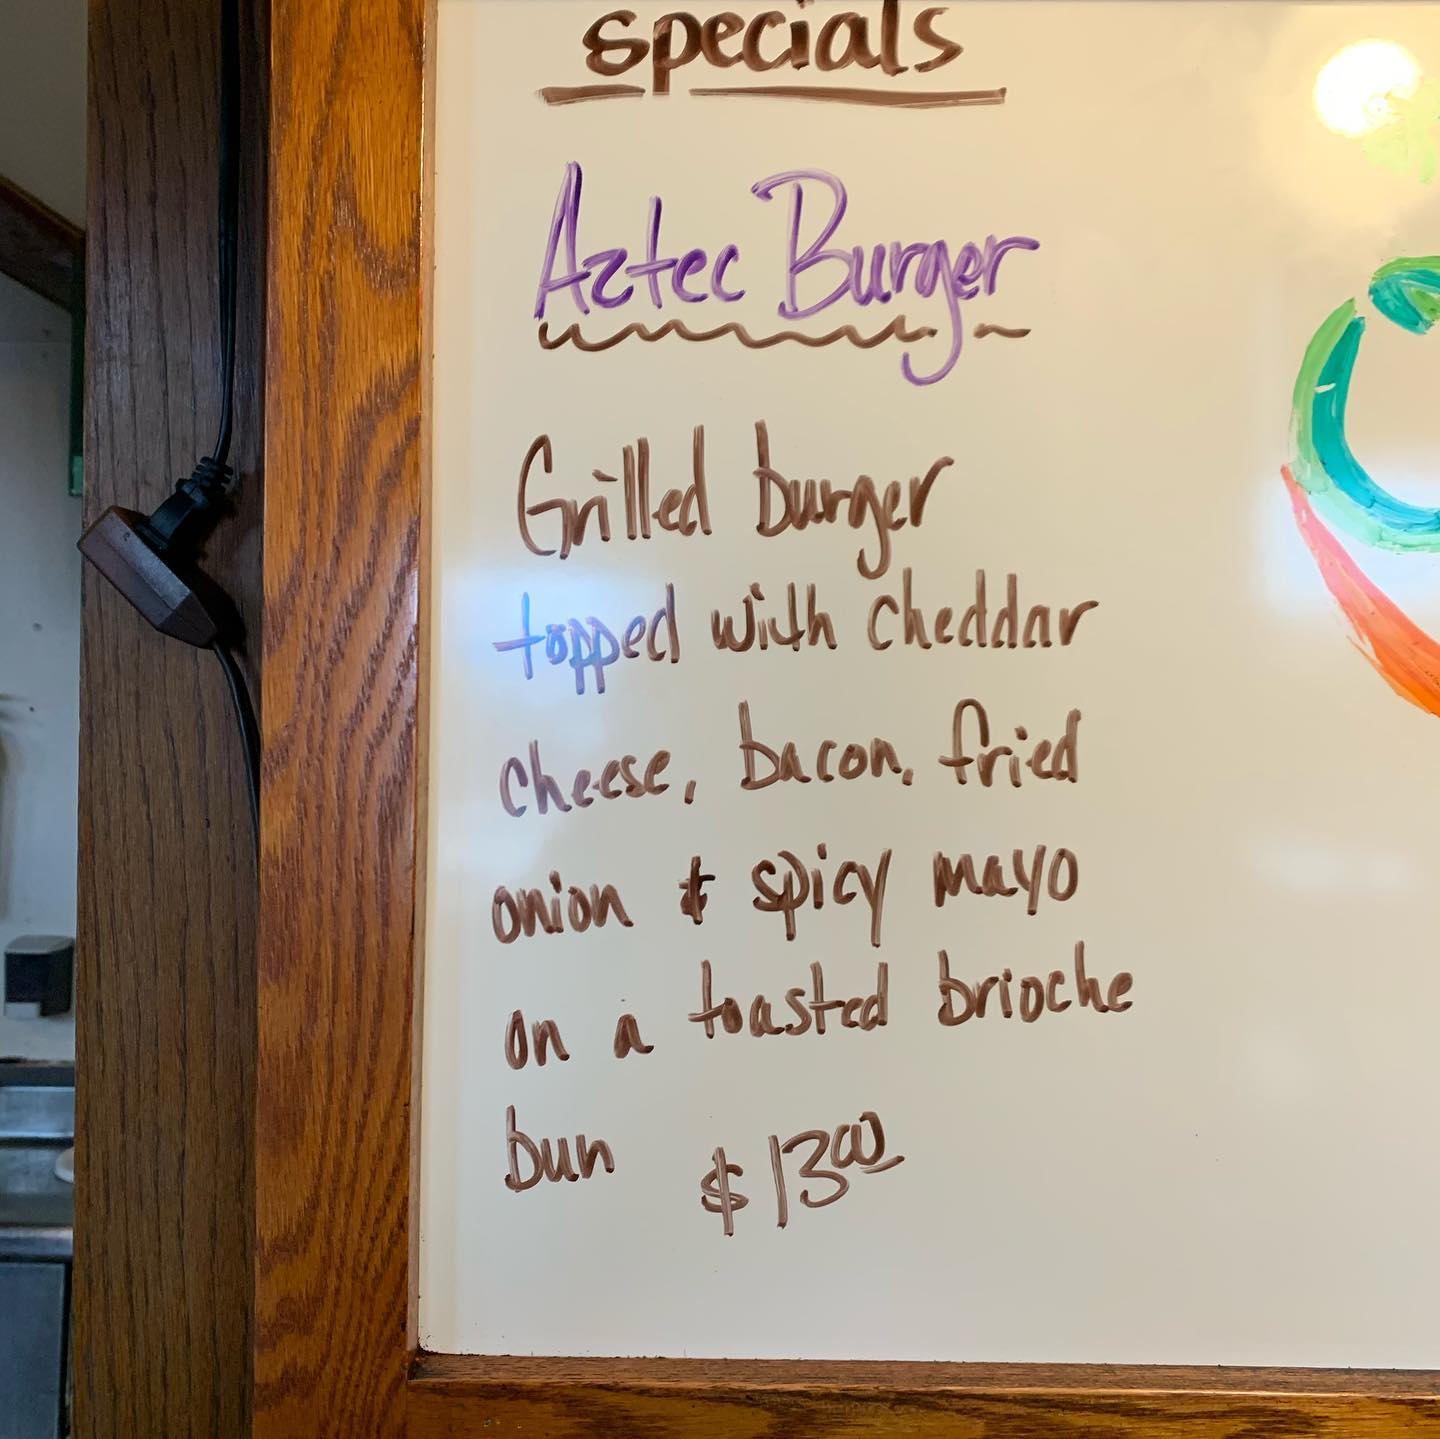 specials
Aztec Burger
Grilled burger
topped with cheddar
cheese, bacon, fried
onion & spicy mayo
on a toasted brioche
bun $13.00